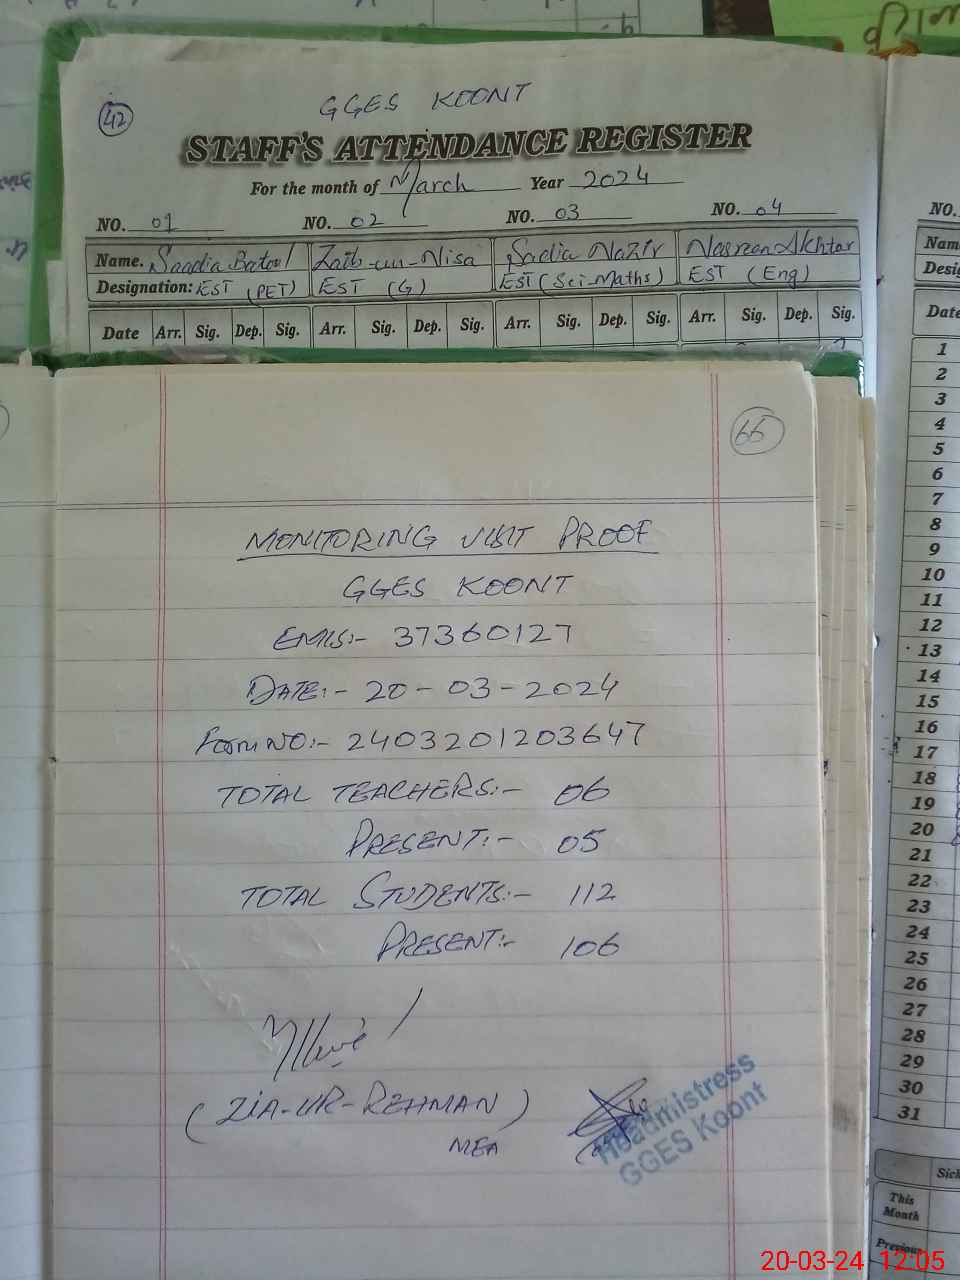 42
GGES KOONT
STAFF'S ATTENDANCE REGISTER
For the month of March Year 2024
NO. 01 NO. 02 NO. 03 NO. 04
Name. Saadia Batool Zaib-un-Nisa Sadia Nazir Nasreen Akhtar
Designation: EST (PET) EST (G) EST (Sci-Maths) EST (Eng)
Date Arr. Sig. Dep. Sig. Arr. Sig. Dep. Sig. Arr. Sig. Dep. Sig. Arr. Sig. Dep. Sig.
66
MONITORING VISIT PROOF
GGES KOONT
EMIS:- 37360127
DATE:- 20-03-2024
Form NO:- 2403201203647
TOTAL TEACHERS:- 06
PRESENT:- 05
TOTAL STUDENTS:- 112
PRESENT:- 106
(ZIA-UR-REHMAN)
MEA
Headmistress
GGES Koont
NO.
Nam
Desig
Date
1
2
3
4
5
6
7
8
9
10
11
12
13
14
15
16
17
18
19
20
21
22
23
24
25
26
27
28
29
30
31
Sick
This
Month
Previou
20-03-24 12:05